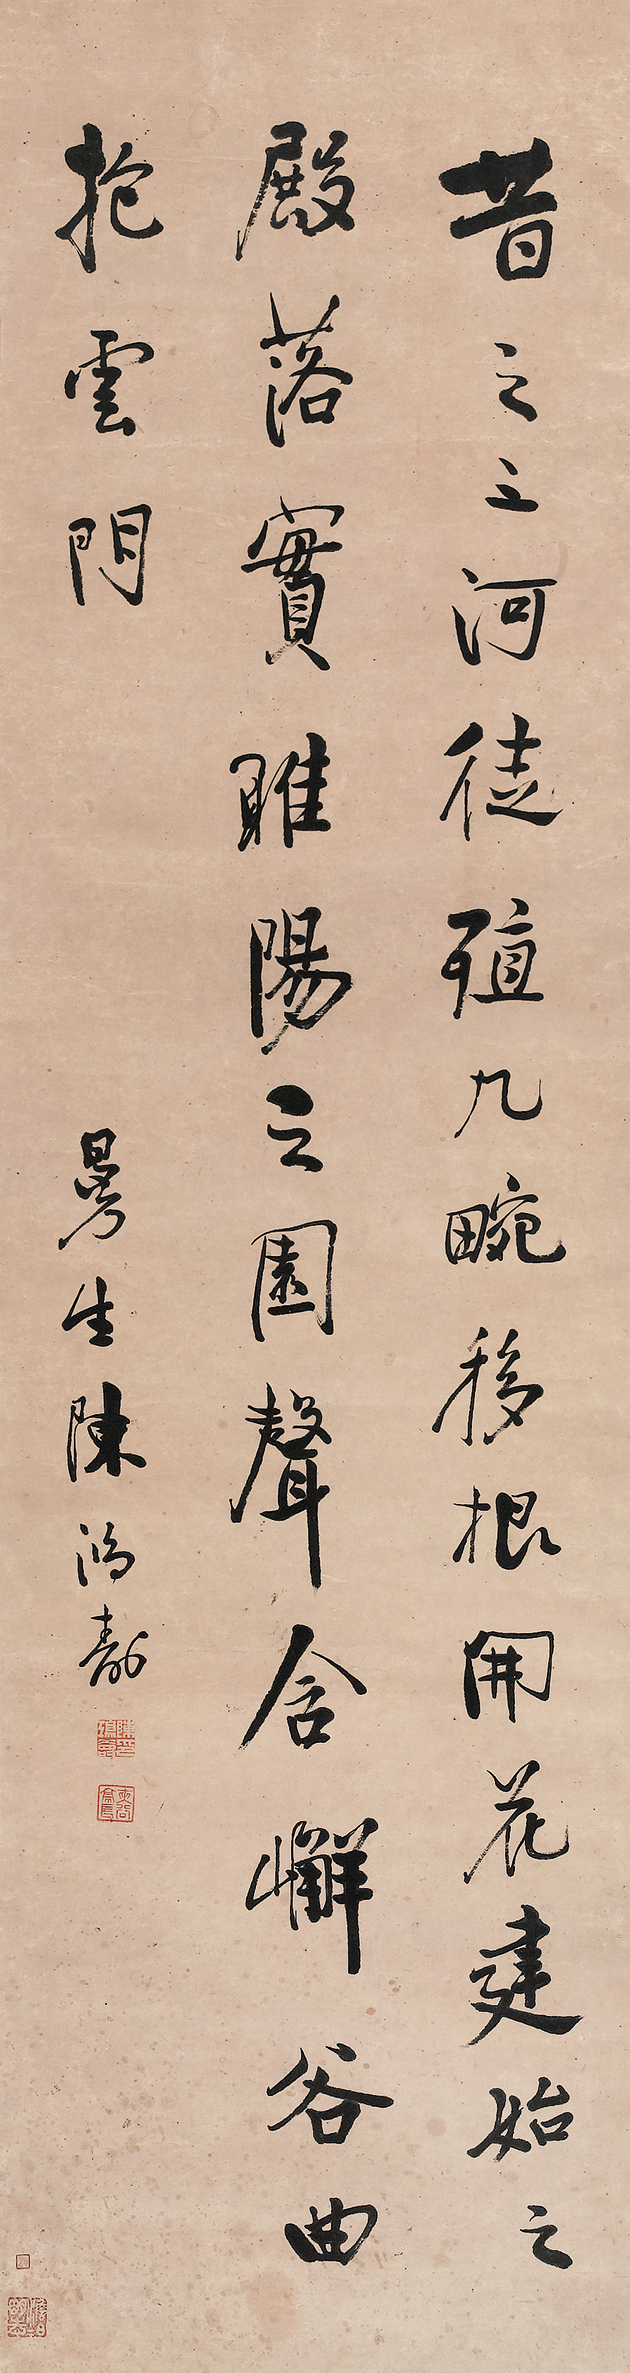 昔之三河徙殖九畹移根開花建始之
殿落實睢陽之園聲含嶰谷曲
抱雲門
曼生陳鴻壽